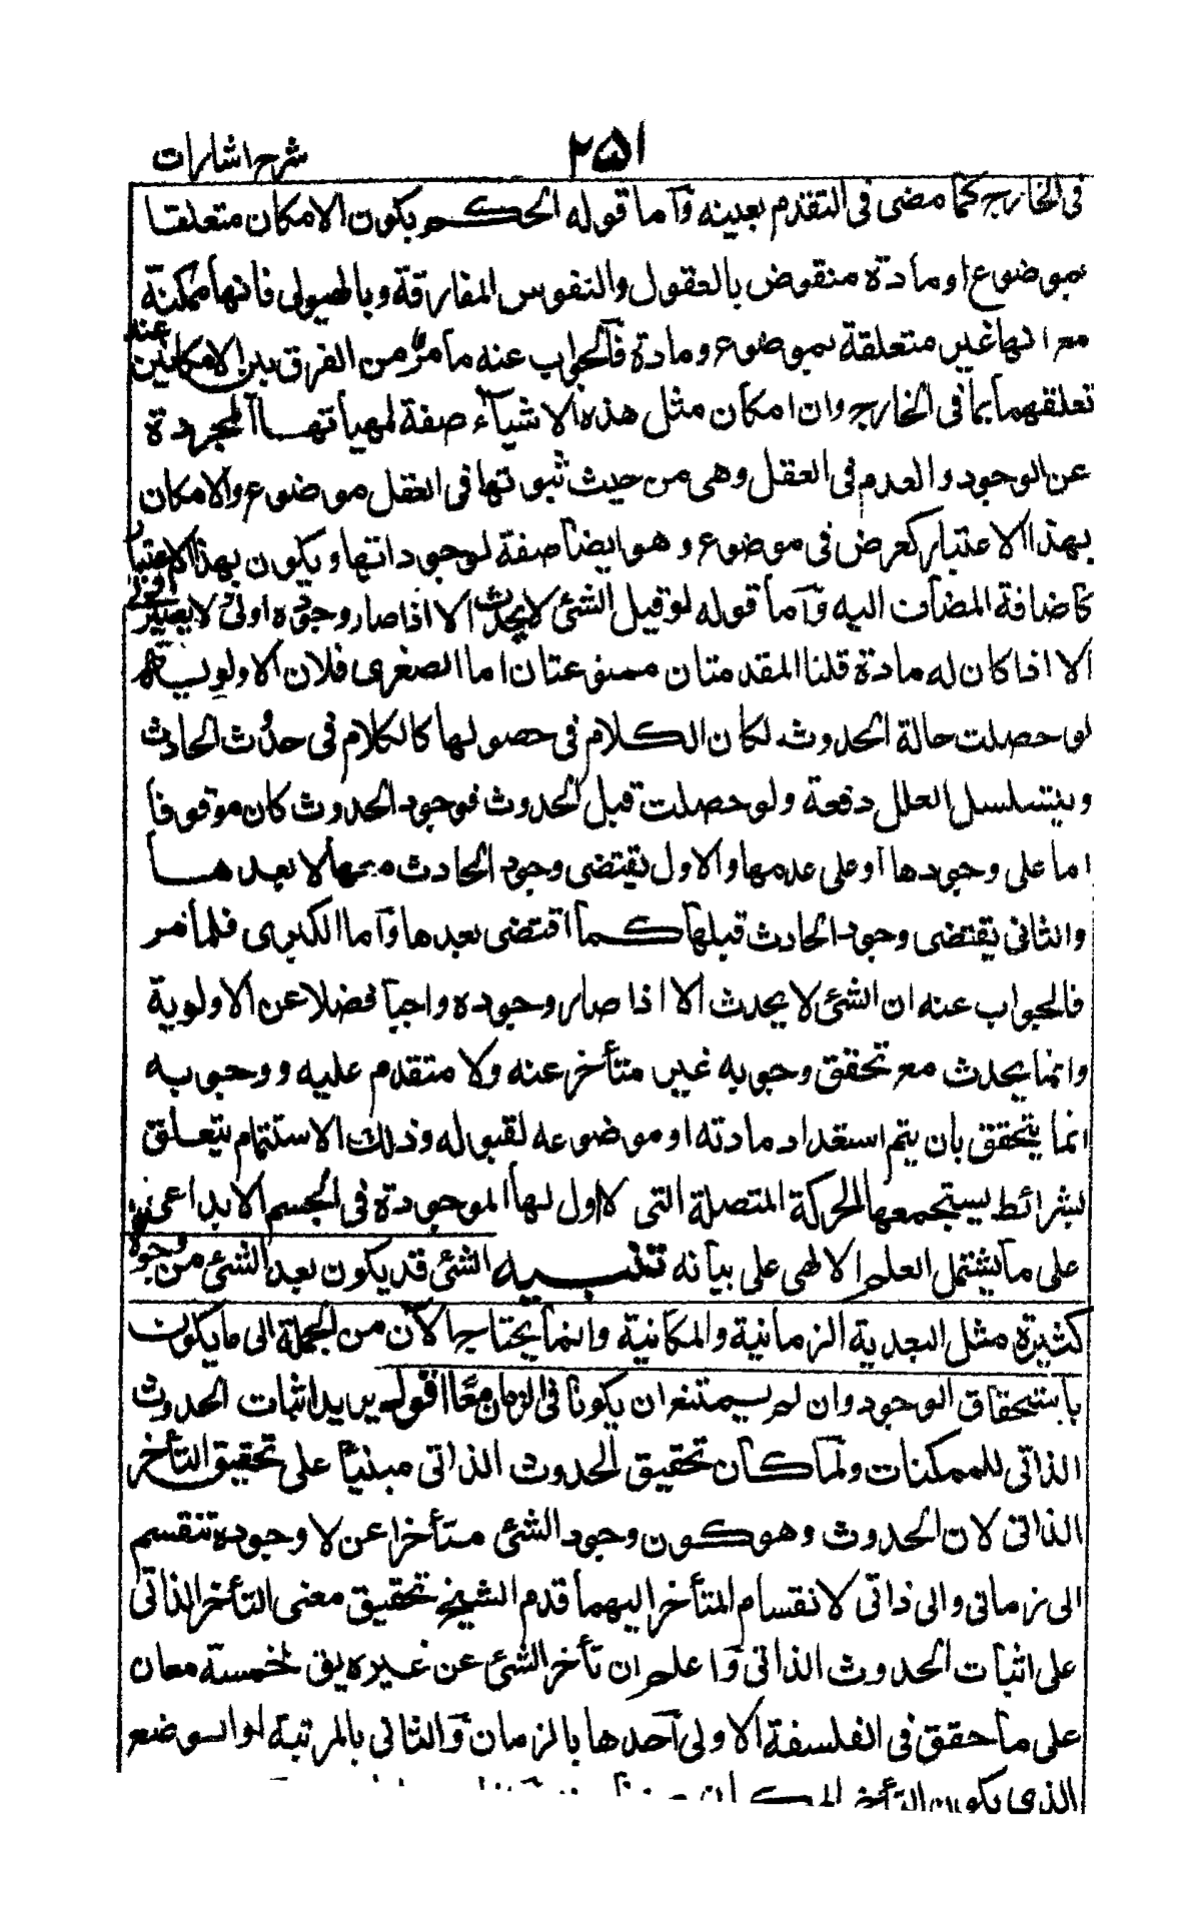 شرح اشارات ٢٥١
فی الخارج کما مضی فی التقدم بعینه وآما قوله الحکم بکون الامکان متعلقا
بموضوع او مادة منقوض بالعقول والنفوس المفارقة وبالهیولی فانها ممکنة
مع انها غیر متعلقة بموضوع ومادة فالجواب عنه ما مر من الفرق بین الامکانین عند
تعلقهما بما فی الخارج وان امکان مثل هذه الاشیآء صفة لمهیاتها المجردة
عن الوجود والعدم فی العقل وهی من حیث ثبوتها فی العقل موضوع والامکان
بهذا الاعتبار کعرض فی موضوع وهو ایضا صفة لوجوداتها ویکون بهذا الاعتبار
کاضافة المضاف الیه وآما قوله لو قیل الشئ لا یحدث الا اذا صار وجوده اولی ولا یصیر اولی
الا اذا کان له مادة قلنا المقدمتان ممنوعتان اما الصغری فلان الاولویة
لو حصلت حالة الحدوث لکان الکلام فی حصولها کالکلام فی حدوث الحادث
ویتسلسل العلل دفعة ولو حصلت قبل الحدوث فوجود الحدوث کان موقوفا
اما علی وجودها او علی عدمها والاول یقتضی وجود الحادث معها لا بعدها
والثانی یقتضی وجود الحادث قبلها کما اقتضی بعدها وآما الکبری فلما مر
فالجواب عنه ان الشئ لا یحدث الا اذا صار وجوده واجبا فضلا عن الاولویة
وانما یحدث مع تحقق وجوبه غیر متأخر عنه ولا متقدم علیه ووجوبه
انما یتحقق بان یتم استعداد مادته او موضوعه لقبوله وذلك الاستتمام یتعلق
بشرائط یستجمعها الحرکة المتصلة التی لا اول لها الموجودة فی الجسم الابداعی
علی ما یشتمل العلم الالهی علی بیانه تنبیه الشئ قد یکون بعد الشئ من وجوه
کثیرة مثل البعدیة الزمانیة والمکانیة وانما یحتاج الآن من الجملة الی ما یکون
باستحقاق الوجود وان لم یمتنع ان یکونا فی الزمان معا اقول یرید اثبات الحدوث
الذاتی للممکنات ولما کان تحقیق الحدوث الذاتی مبنیا علی تحقیق التأخر
الذاتی لان الحدوث وهو کون وجود الشئ متأخرا عن لا وجوده تنقسم
الی زمانی والی ذاتی لانقسام المتأخر الیهما قدم الشیخ تحقیق معنی التأخر الذاتی
علی اثبات الحدوث الذاتی وآعلم ان تأخر الشئ عن غیره یق لخمسة معان
علی ما حقق فی الفلسفة الاولی آحدها بالزمان والثانی بالمرتبة او الوضع
الذی یکون التأخر المکان